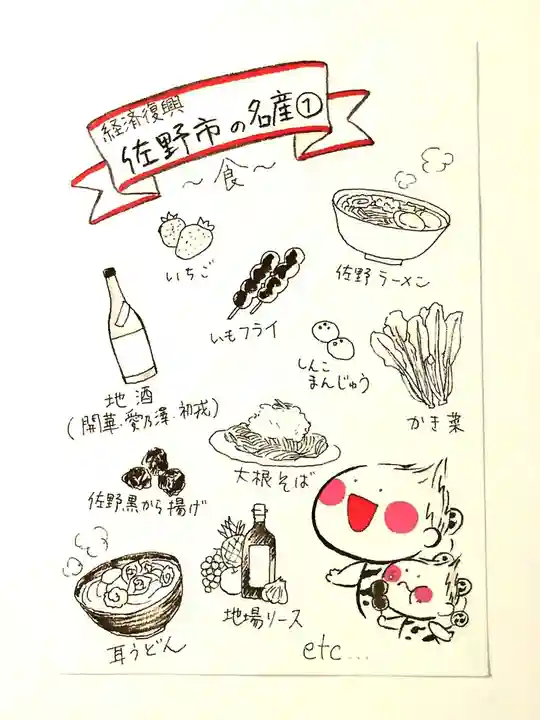 経済復興
佐野市の名産①
～食～
いちご
佐野ラーメン
いもフライ
しんこ
まんじゅう
かき菜
地酒
(開華・愛乃澤・初戎)
大根そば
佐野黒から揚げ
地場リース
耳うどん
etc...